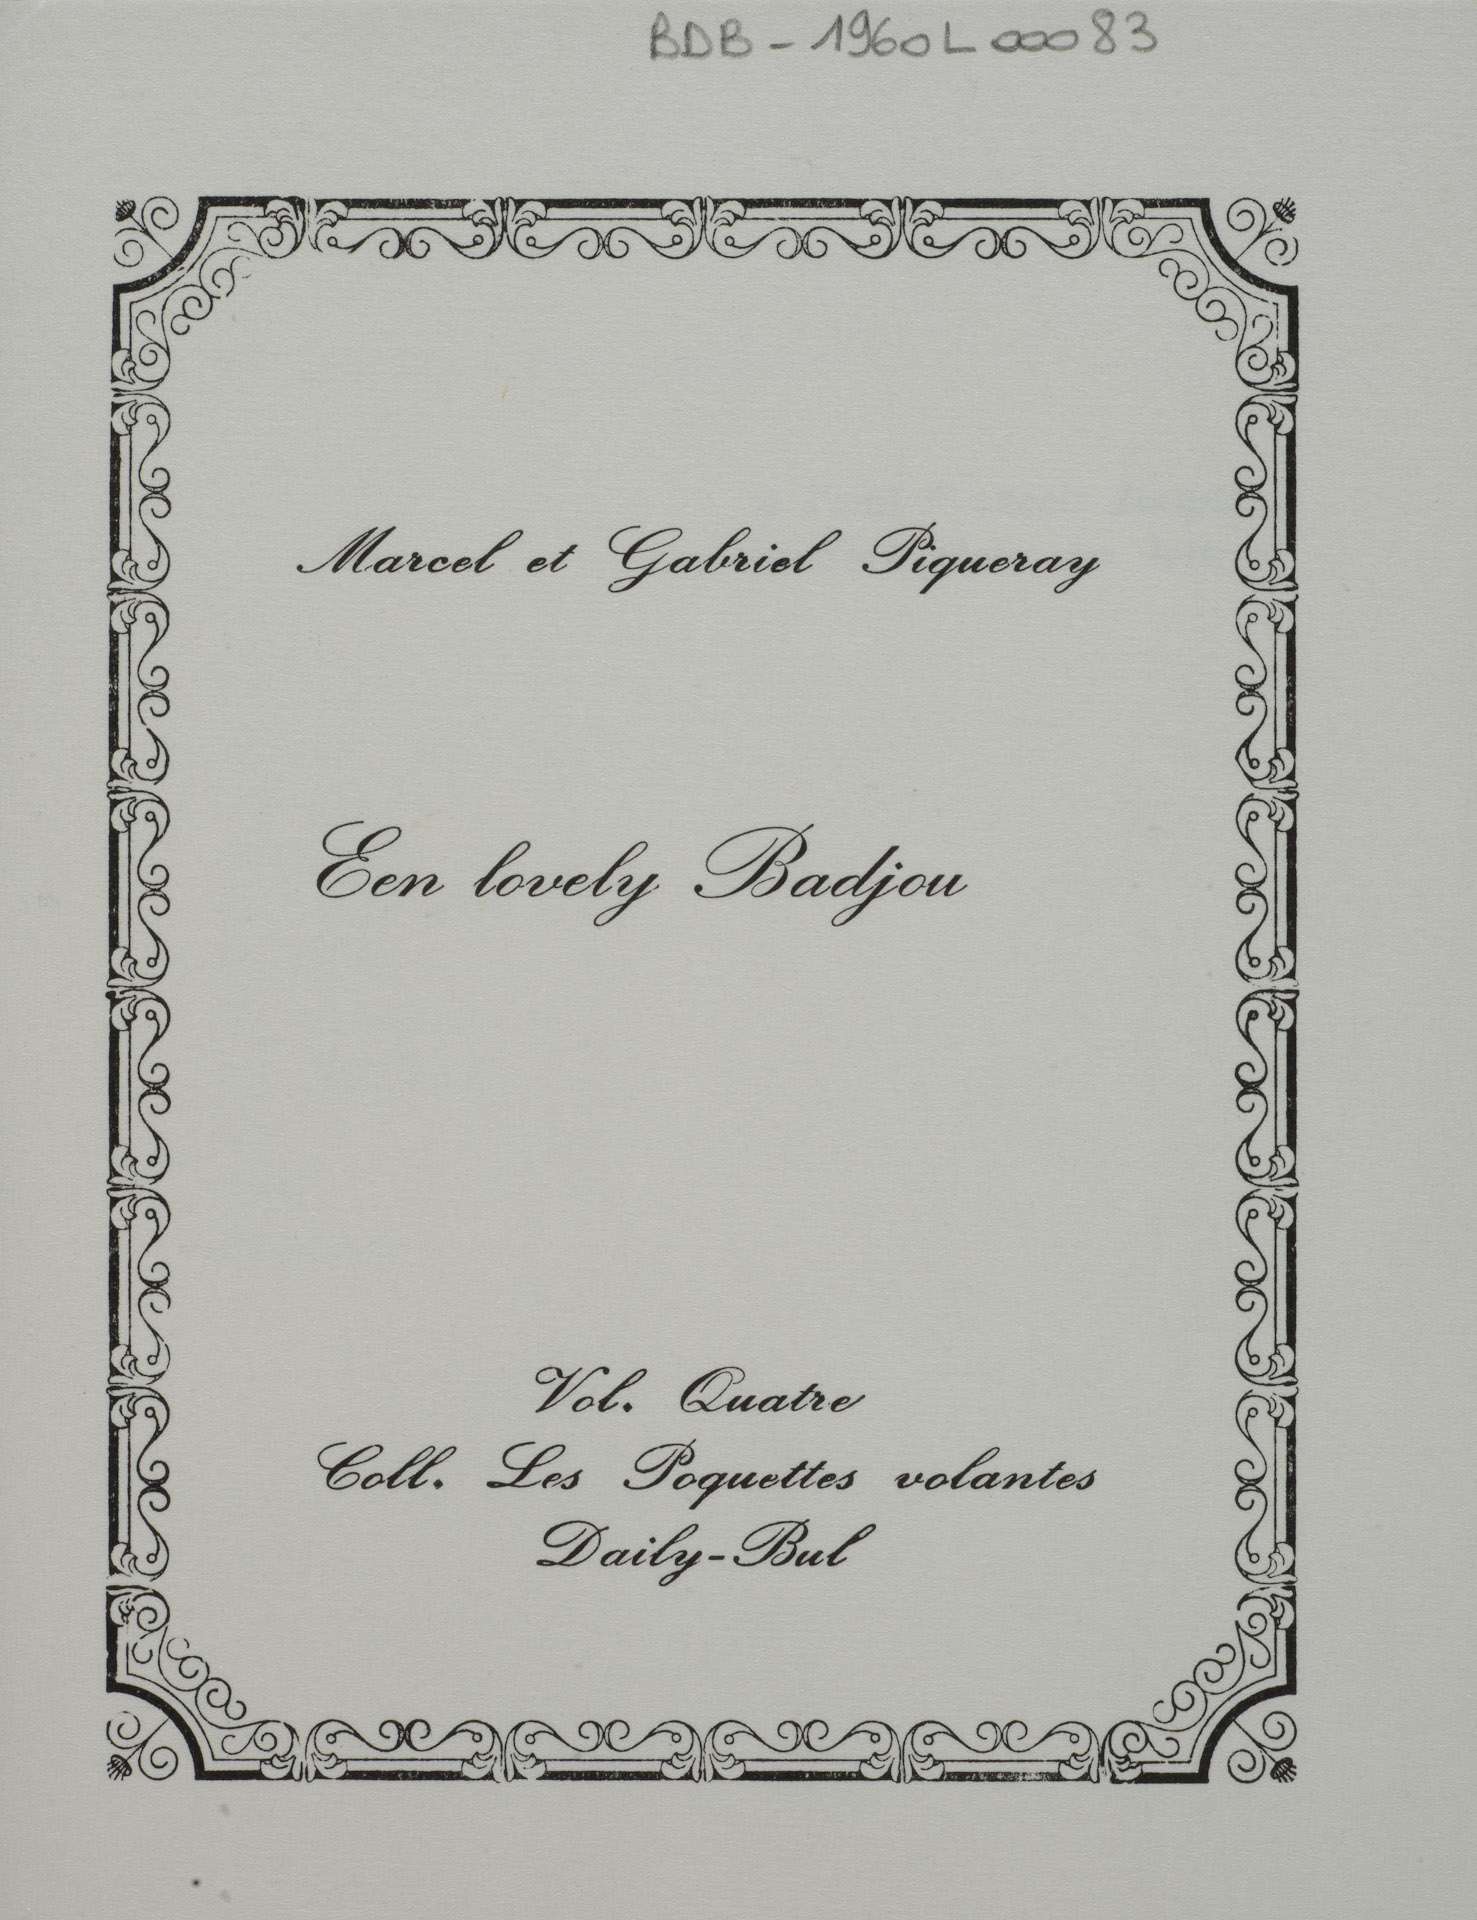 BDB - 1960L00083
Marcel et Gabriel Piqueray
Een lovely Badjou
Vol. Quatre
Coll. Les Poquettes volantes
Daily-Bul